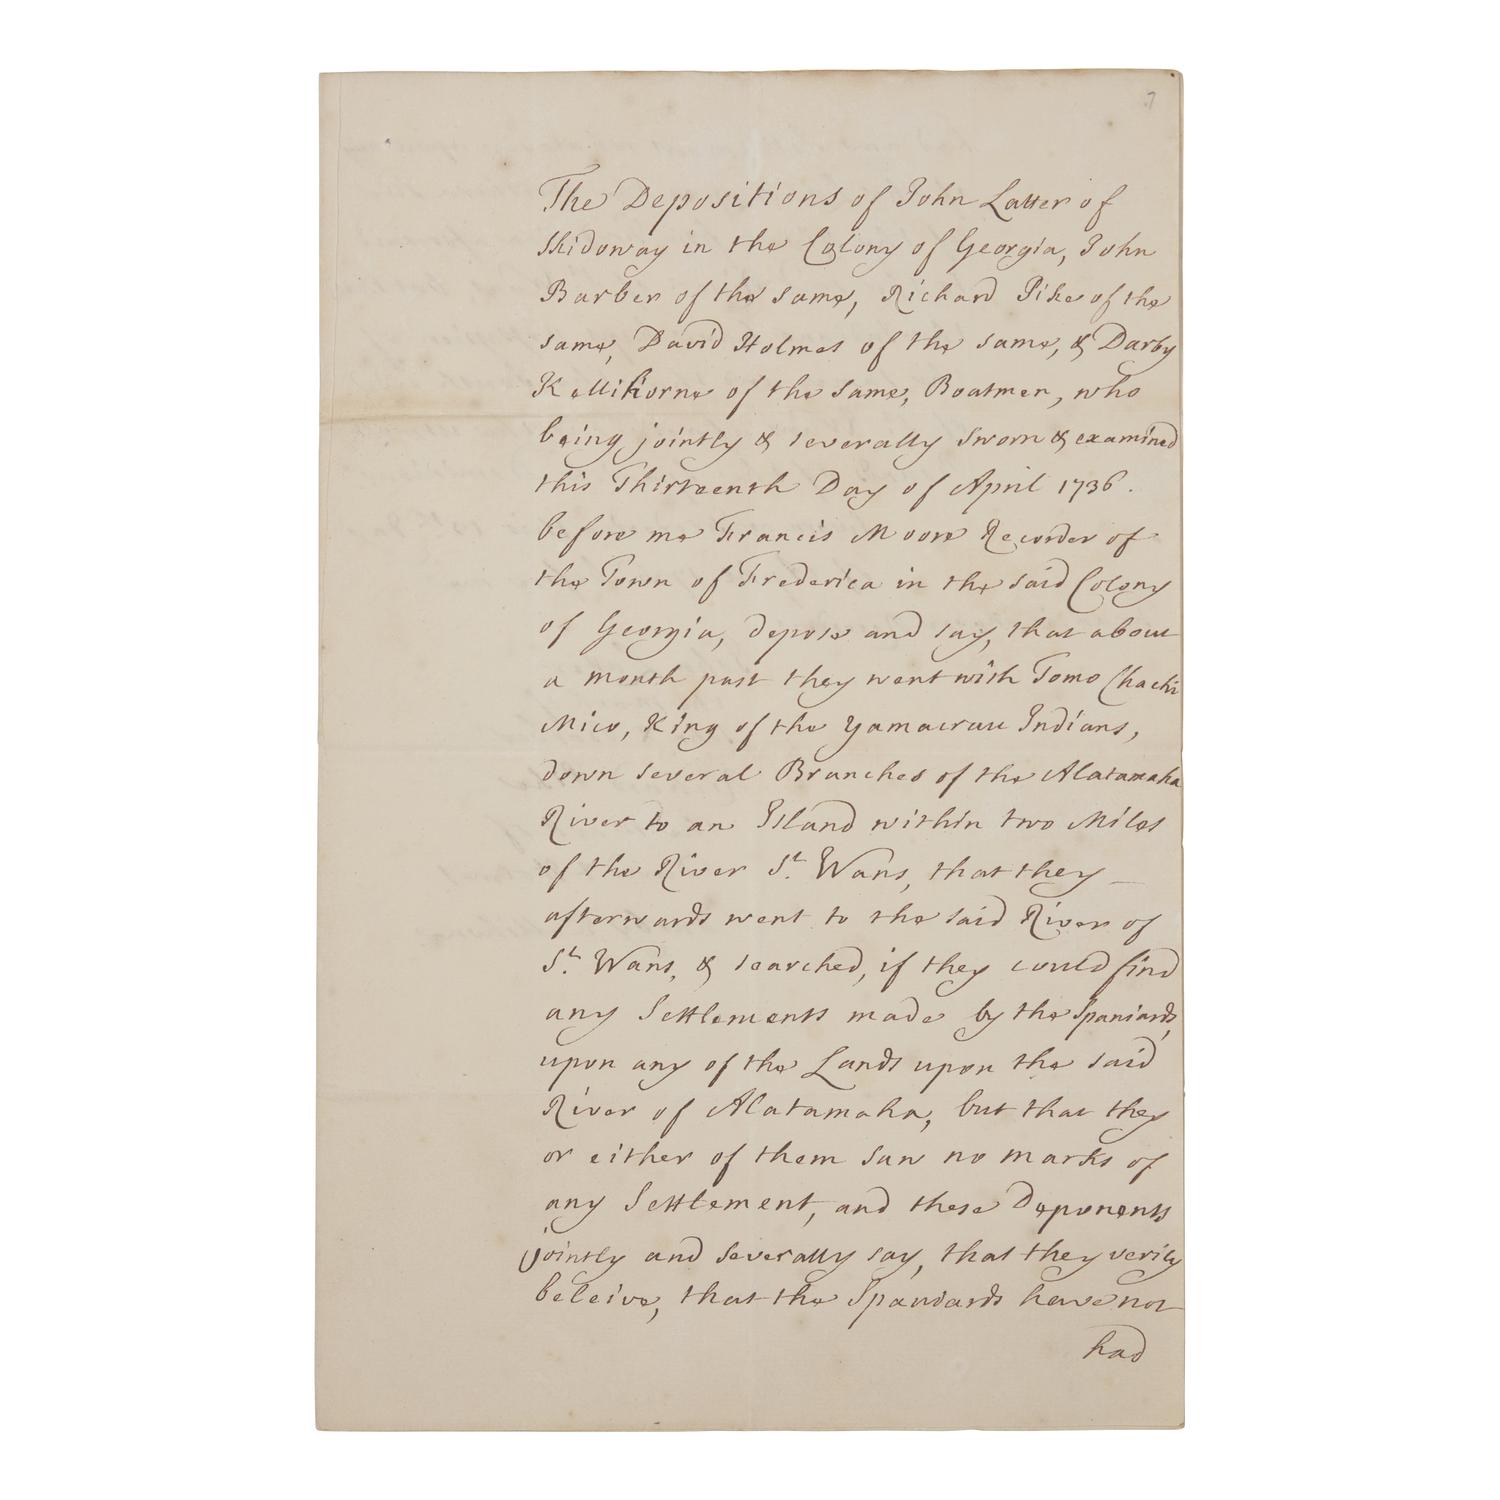 7
The Depositions of John Latter of
Skidoway in the Colony of Georgia, John
Barber of the same, Richard Pike of the
same, David Holmes of the same, & Darby
Kellihorne of the same, Boatmen, who
being jointly & severally sworn & examined
this Thirteenth Day of April 1736.
before me Francis Moore Recorder of
the Town of Frederica in the said Colony
of Georgia, depose and say, that about
a month past they went with Tomo Chachi
Mico, King of the Yamacraw Indians,
down several Branches of the Alatamaha
River to an Island within two Miles
of the River St. Wans, that they
afterwards went to the said River of
St. Wans, & searched, if they could find
any Settlements made by the Spaniards,
upon any of the Lands upon the said
River of Alatamaha, but that they
or either of them saw no marks of
any Settlement, and these Deponents
jointly and severally say, that they verily
beleive, that the Spaniards have not
had